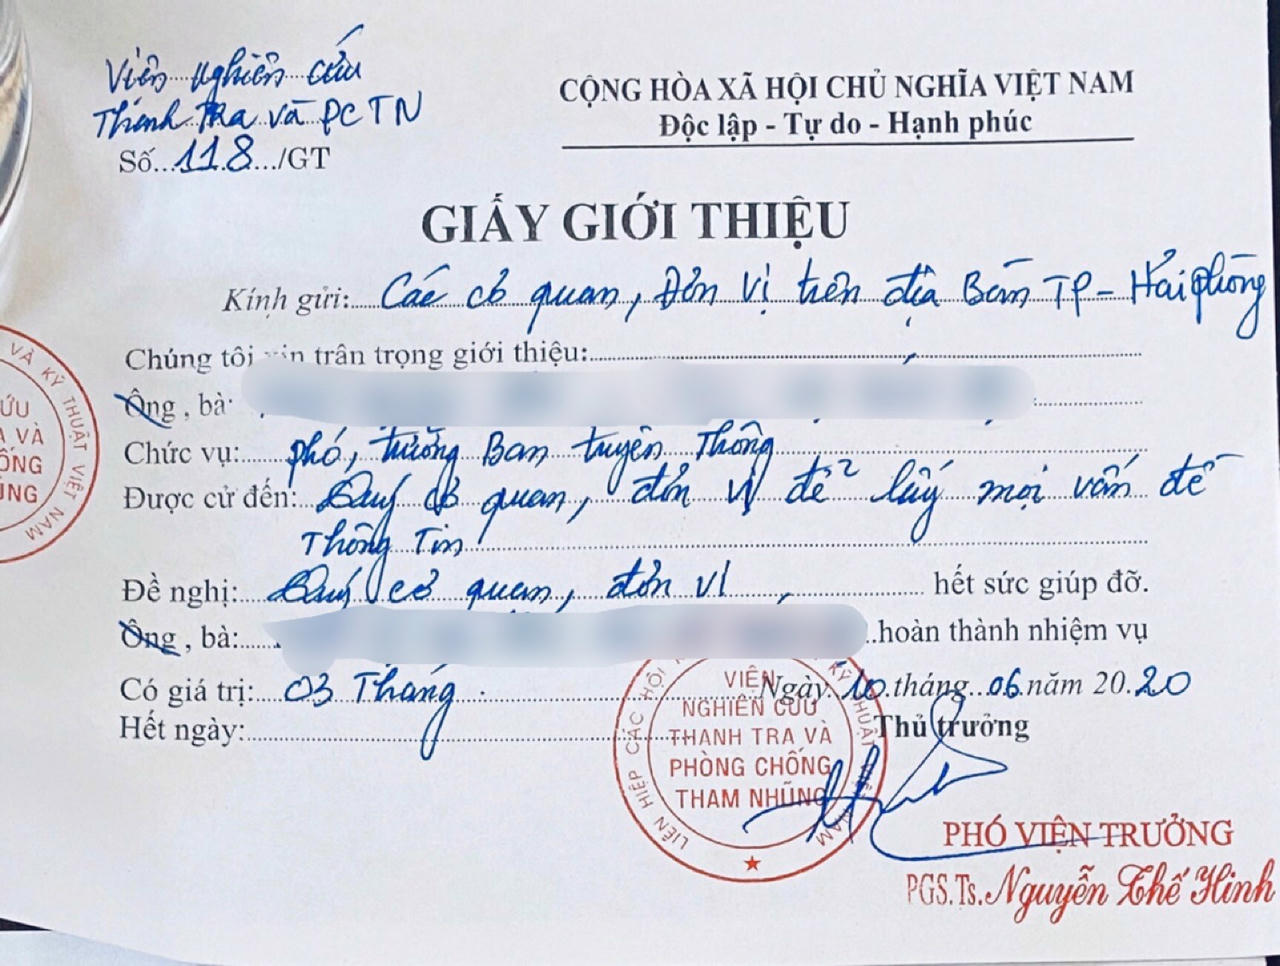 Viện nghiên cứu
Thanh Tra và PCTN
Số...118.../GT
CỘNG HÒA XÃ HỘI CHỦ NGHĨA VIỆT NAM
Độc lập - Tự do - Hạnh phúc
GIẤY GIỚI THIỆU
Kính gửi: Các cơ quan, Đơn vị trên địa Bàn TP - Hải phòng
Chúng tôi xin trân trọng giới thiệu:
Ông, bà:
Chức vụ: phó, trưởng Ban tuyên Thông
Được cử đến: Quý cơ quan, đơn vị để lấy mọi vấn đề
Thông Tin
Đề nghị: Quý cơ quan, đơn vị, hết sức giúp đỡ.
Ông, bà: hoàn thành nhiệm vụ
Có giá trị: 03 Tháng. Ngày 10 tháng 06 năm 2020
Hết ngày:
Thủ trưởng
LIÊN HIỆP CÁC HỘI KỸ THUẬT VIỆT NAM
VIỆN
NGHIÊN CỨU
THANH TRA VÀ
PHÒNG CHỐNG
THAM NHŨNG
PHÓ VIỆN TRƯỞNG
PGS.Ts. Nguyễn Thế Hinh
VÀ KỸ THUẬT VIỆT NAM
ỨU
A VÀ
ỐNG
NG